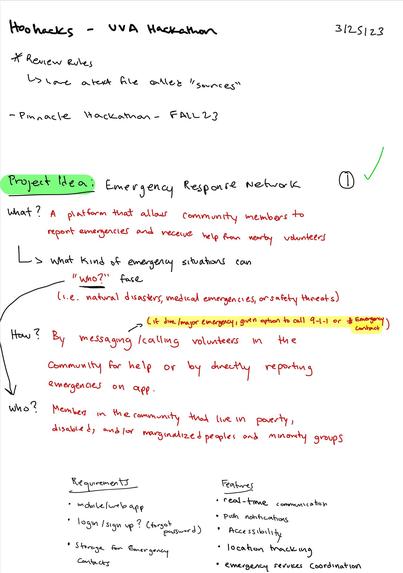 Hoohacks - UVA Hackathon 3/25/23
* Review Rules
↳ have a text file called "sources"
- Pinnacle Hackathon - FALL 23
Project Idea: Emergency Response Network ①
What? A platform that allows community members to
report emergencies and receive help from nearby volunteers
↳ what kind of emergency situations can
"who?" face
(i.e. natural disasters, medical emergencies, or safety threats)
(if dire/major emergency, given option to call 9-1-1 or # Emergency
contact)
How? By messaging/calling volunteers in the
community for help or by directly reporting
emergencies on app.
Who? Members in the community that live in poverty,
disabled, and/or marginalized peoples and minority groups
Requirements
• mobile/web app
• login/sign up? (forgot
password)
• Storage for Emergency
Contacts
Features
• real-time communication
• push notifications
• Accessibility
• location tracking
• emergency services coordination